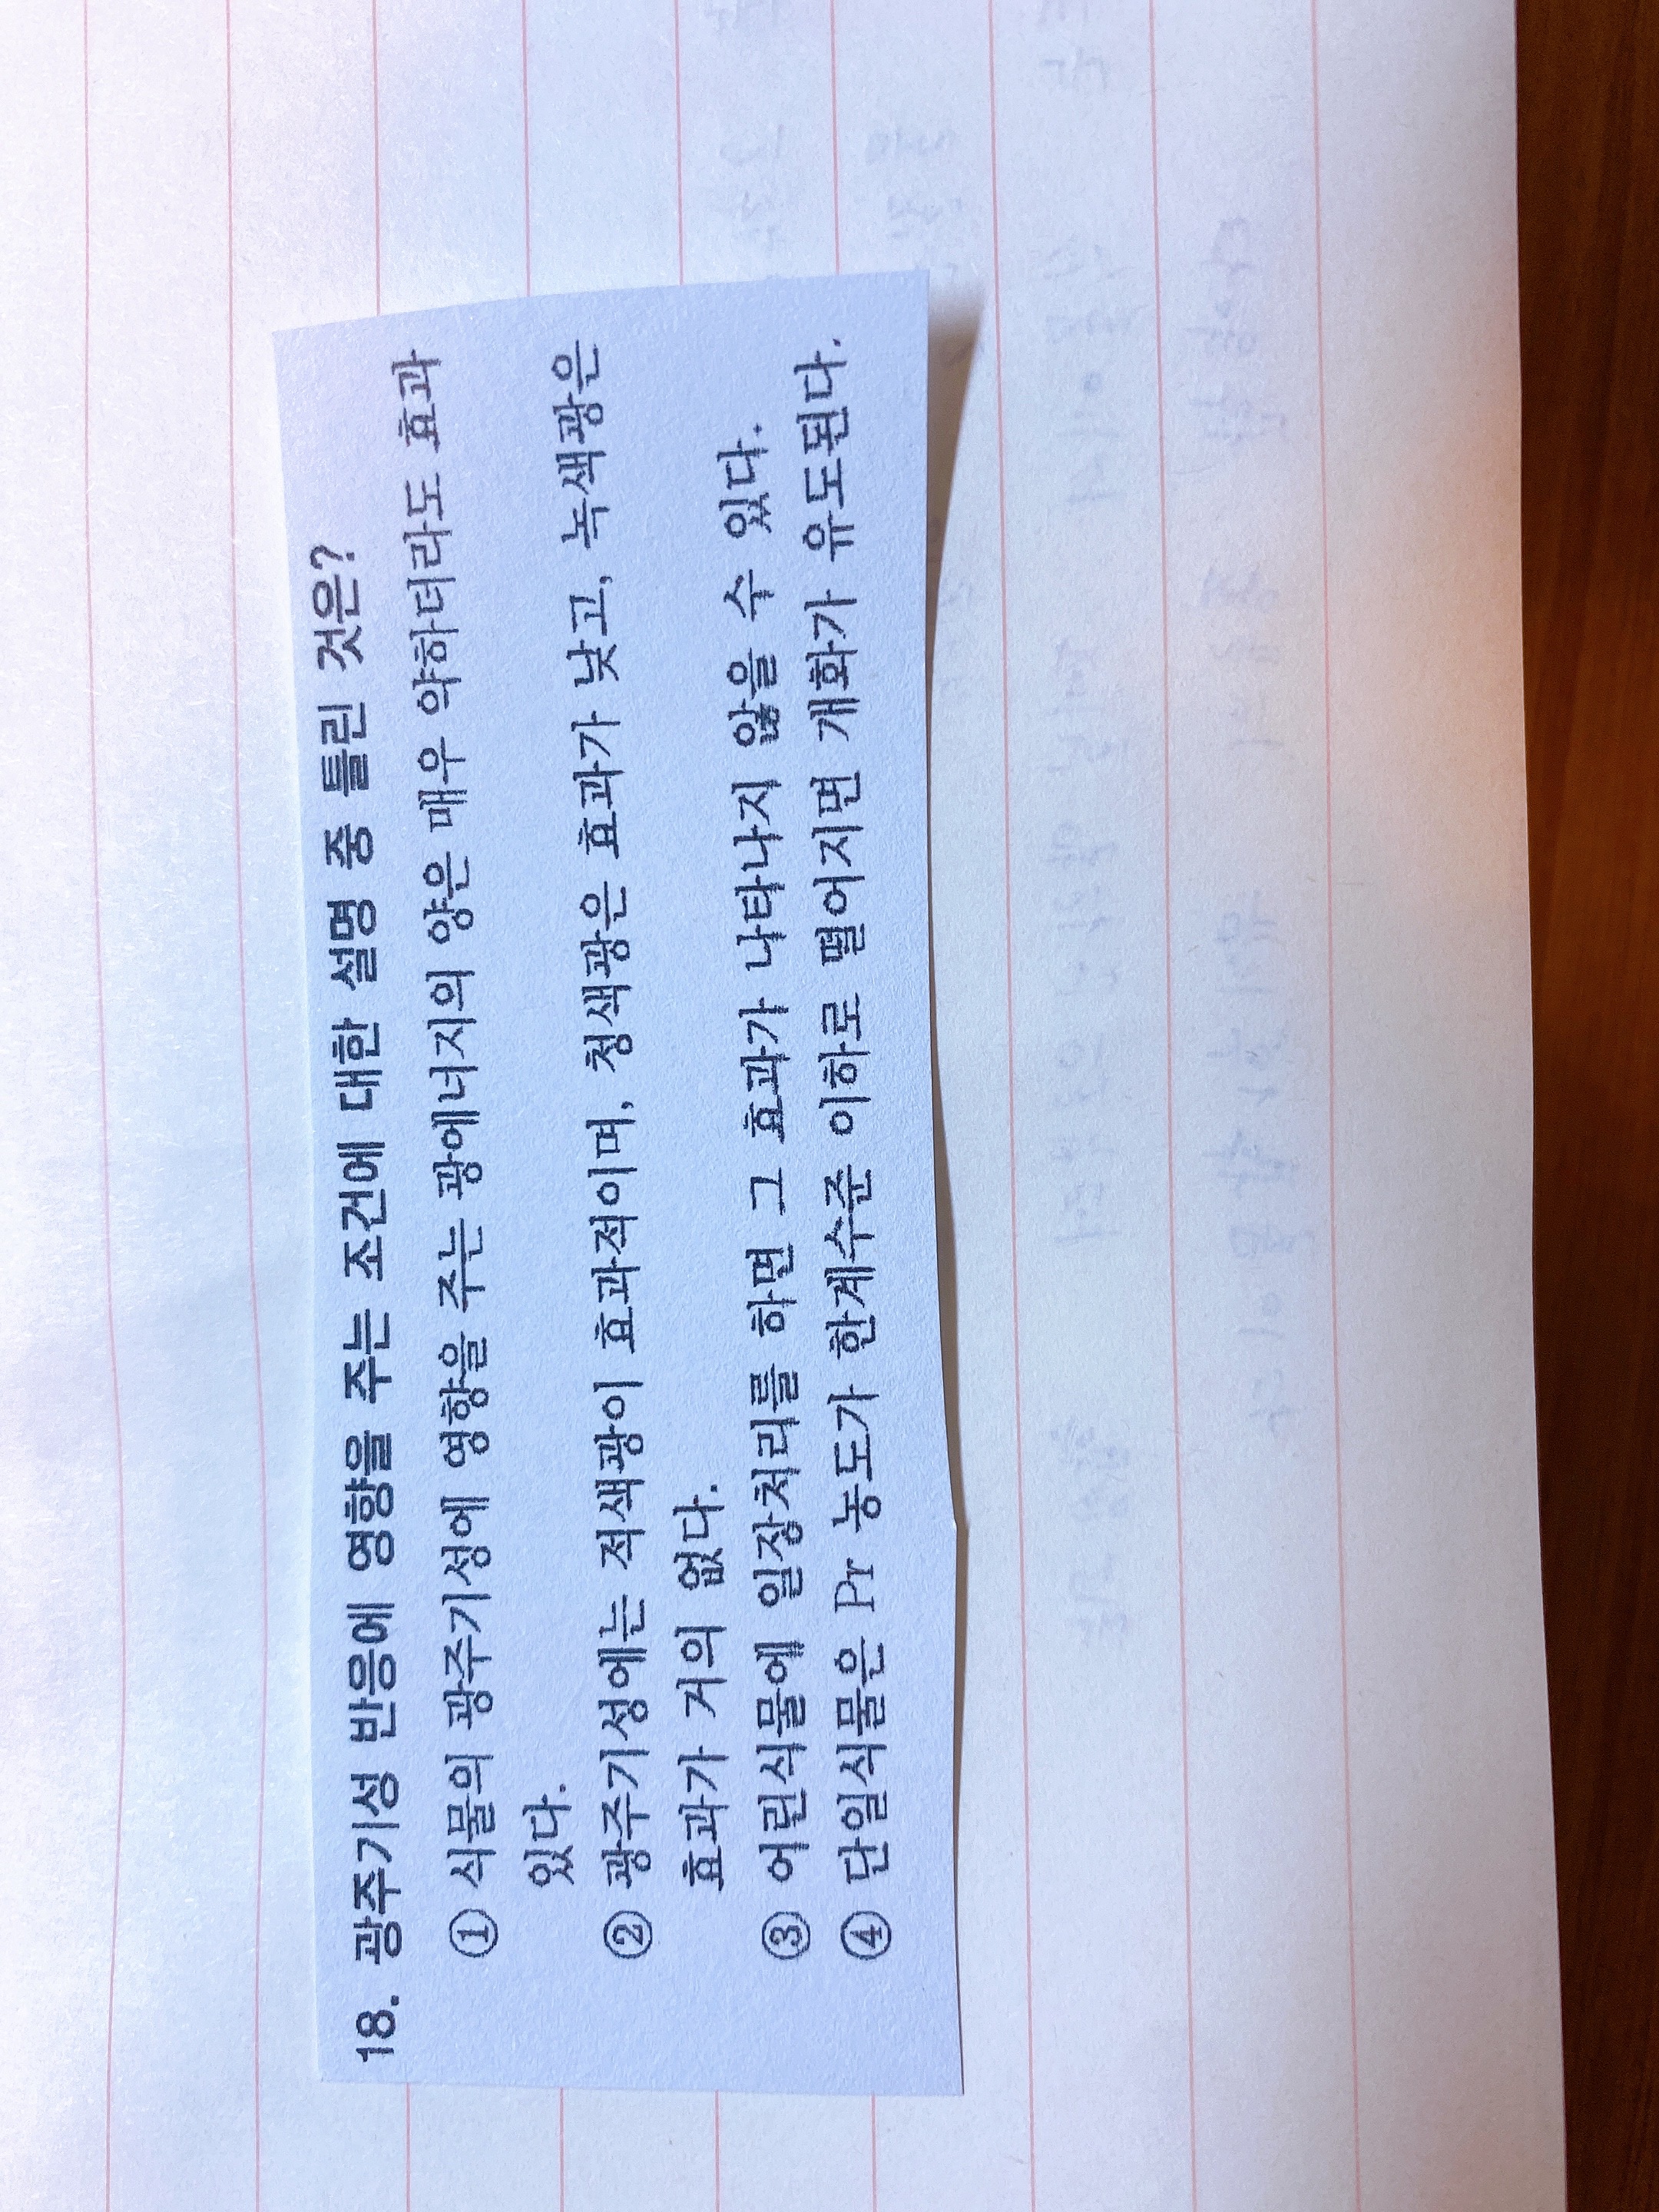 18. 광주기성 반응에 영향을 주는 조건에 대한 설명 중 틀린 것은?
① 식물의 광주기성에 영향을 주는 광에너지의 양은 매우 약하더라도 효과
있다.
② 광주기성에는 적색광이 효과적이며, 청색광은 효과가 낮고, 녹색광은
효과가 거의 없다.
③ 어린식물에 일장처리를 하면 그 효과가 나타나지 않을 수 있다.
④ 단일식물은 Pr 농도가 한계수준 이하로 떨어지면 개화가 유도된다.